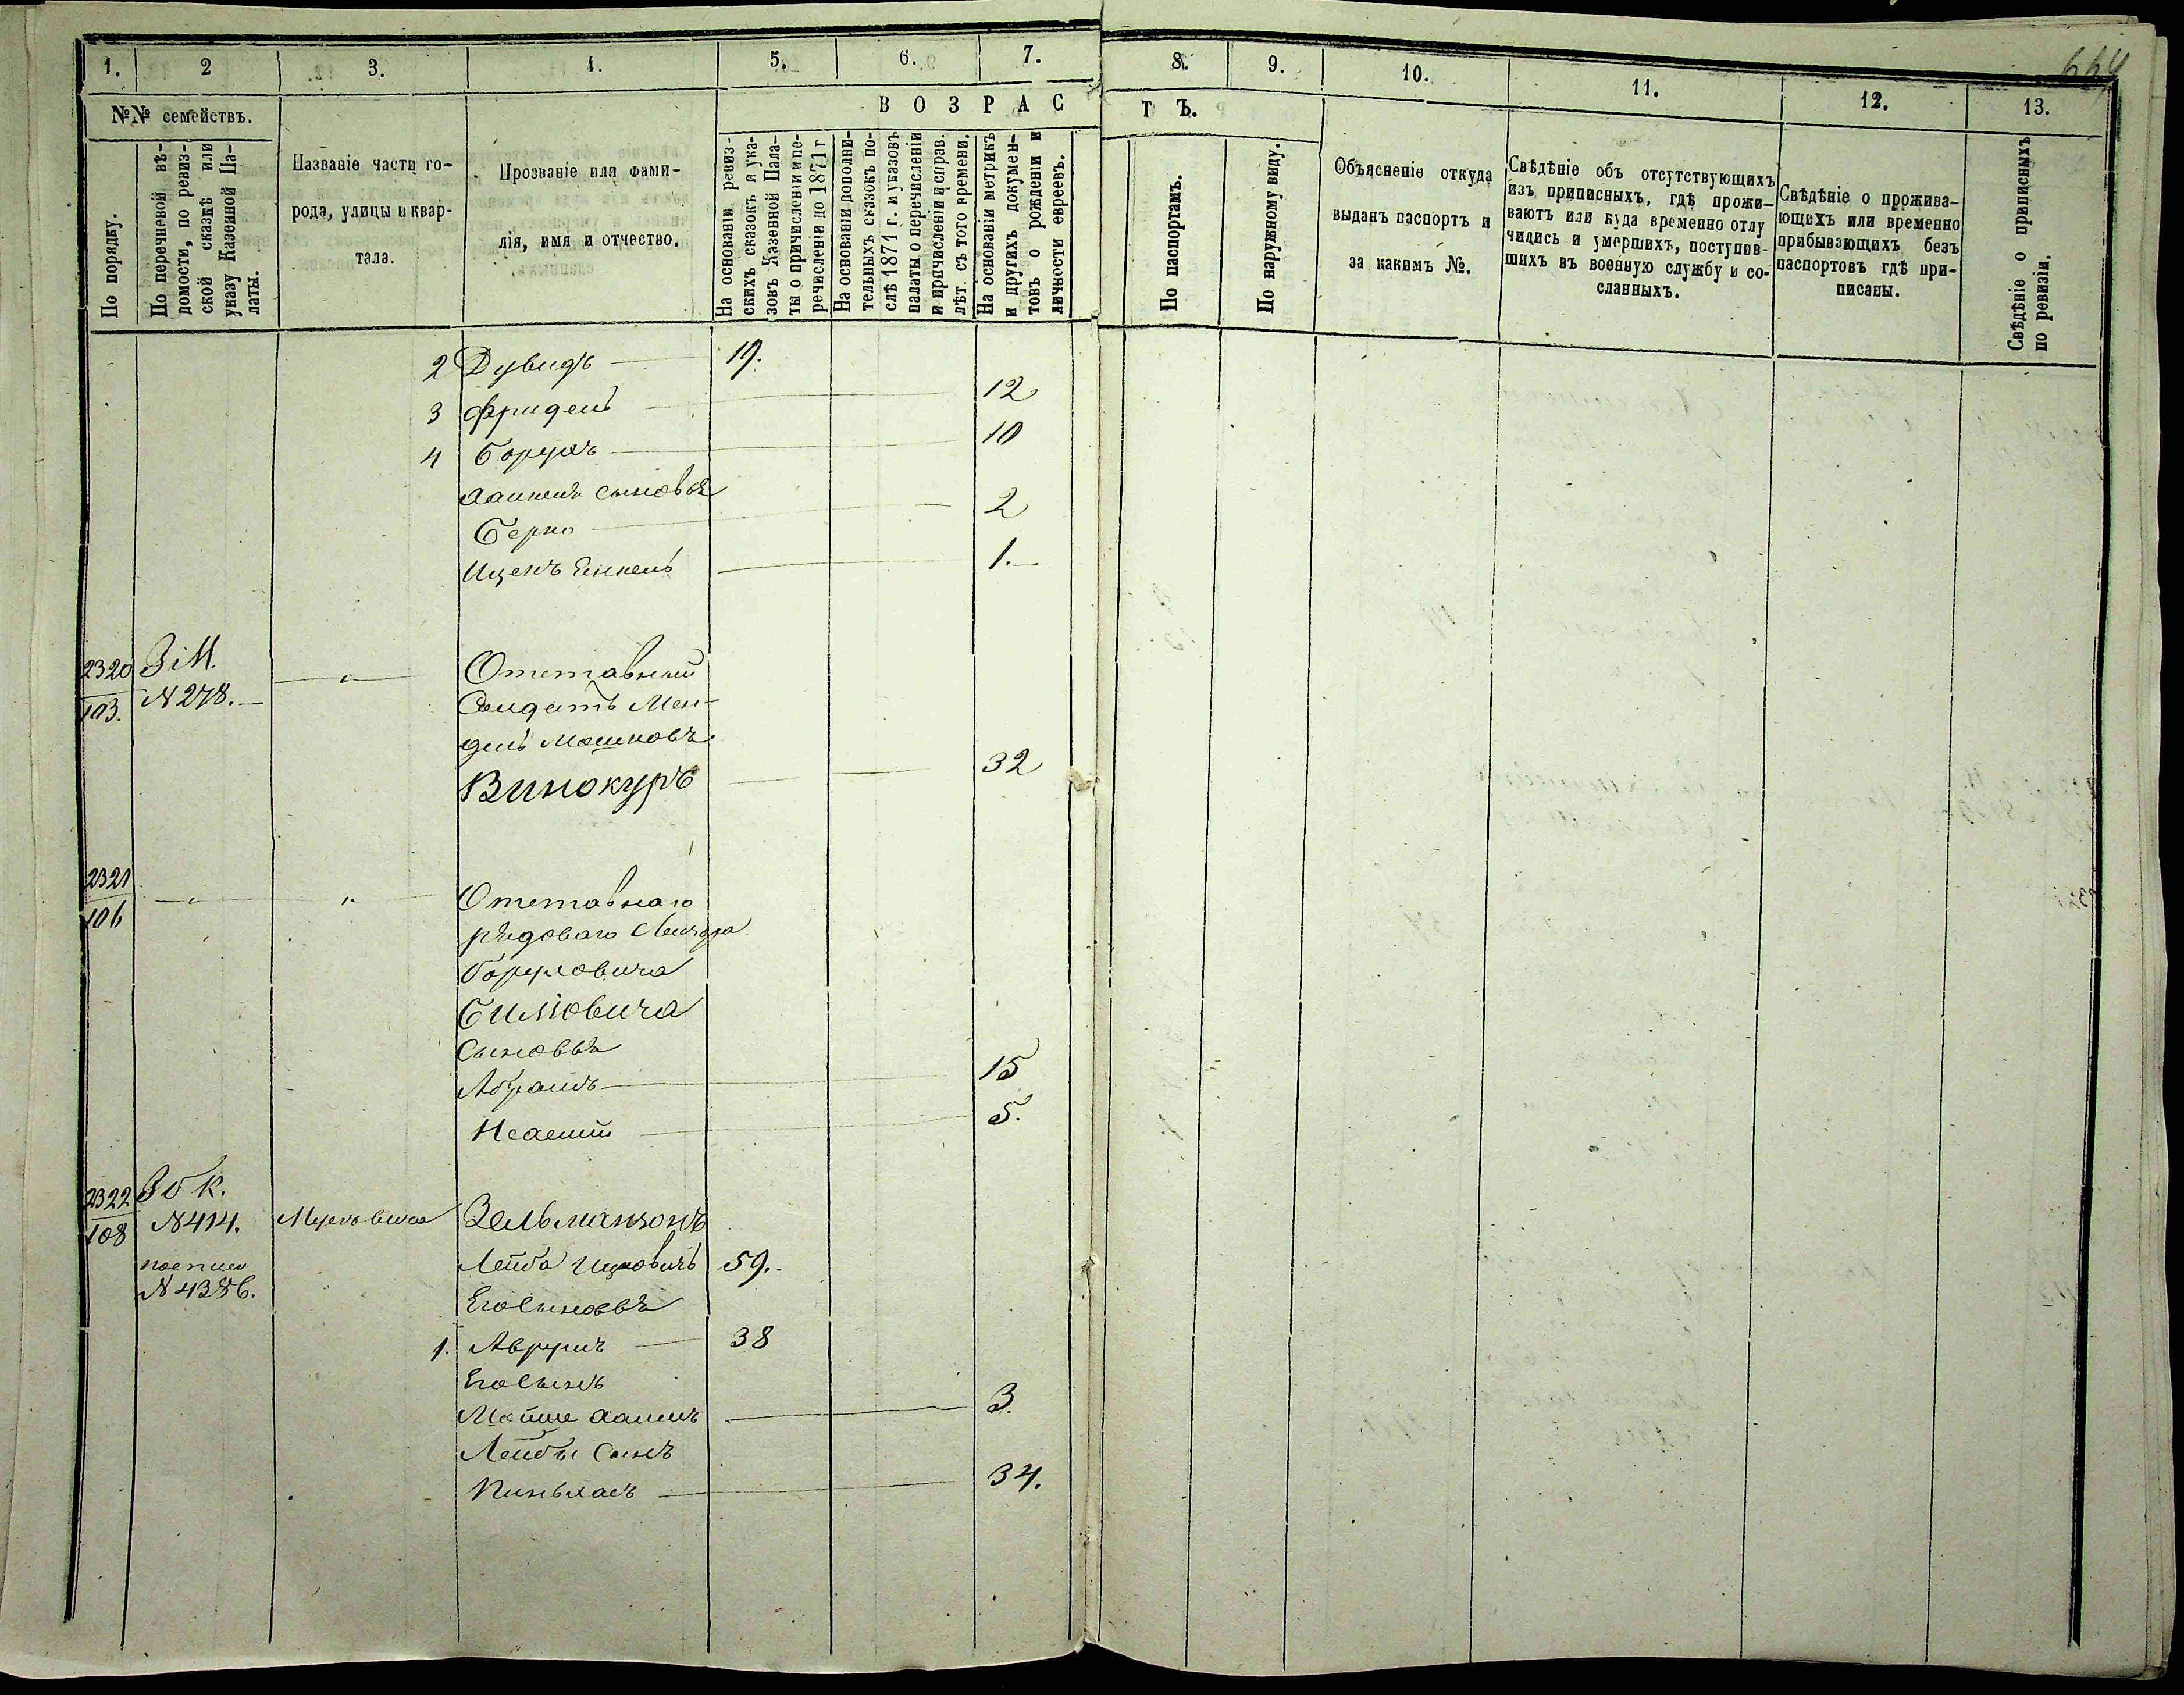 664
1. 2 3. 4. 5. 6. 7. 8. 9. 10. 11. 12. 13.
№№ семействъ.
По порядку.
По перечневой вѣ-
домости, по ревиз-
ской сказкѣ или
указу Казенной Па-
латы.
Названіе части го-
рода, улицы и квар-
тала.
Прозваніе или фами-
лія, имя и отчество.
ВОЗРАСТЪ.
На основаніи ревиз-
скихъ сказокъ и ука-
зовъ Казенной Пала-
ты о причисленіи и пе-
речисленіи до 1871 г
На основаніи дополни-
тельныхъ сказокъ по-
слѣ 1871 г. и указовъ
палаты о перечисленіи
и причисленіи и справ.
лѣт. съ того времени.
На основаніи метрикъ
и другихъ докумен-
товъ о рожденіи и
личности евреевъ.
По паспортамъ.
По наружному виду.
Объясненіе откуда
выданъ паспортъ и
за какимъ №.
Свѣдѣніе объ отсутствующихъ
изъ приписныхъ, гдѣ прожи-
ваютъ или куда временно отлу
чились и умершихъ, поступив-
шихъ въ военную службу и со-
сланныхъ.
Свѣдѣніе о прожива-
ющихъ или временно
прибывающихъ безъ
паспортовъ гдѣ при-
писаны.
Свѣдѣніе о приписныхъ
по ревизіи.
2 Дувидъ 19.
3 Фридель 12
4 Борухъ 10
сыновья
Берко 2
Ицекъ Янкель 1.
2320 103. З і М. N 278. Отставный
Солдатъ Мен-
дель Мошковъ
Винокуръ 32
2321 106 Отставнаго
рядоваго
Боруховича
Билловича
Сыновья
Абрамъ 15
5.
2322 108 З о К. N 414. Зельманзонъ
N 4386. Лейба Ицковичъ 59.
Его Сыновья
1. Аврумъ 38
Его Сынъ
Мойше 3.
Лейбы Сынъ
Пиньхасъ 34.